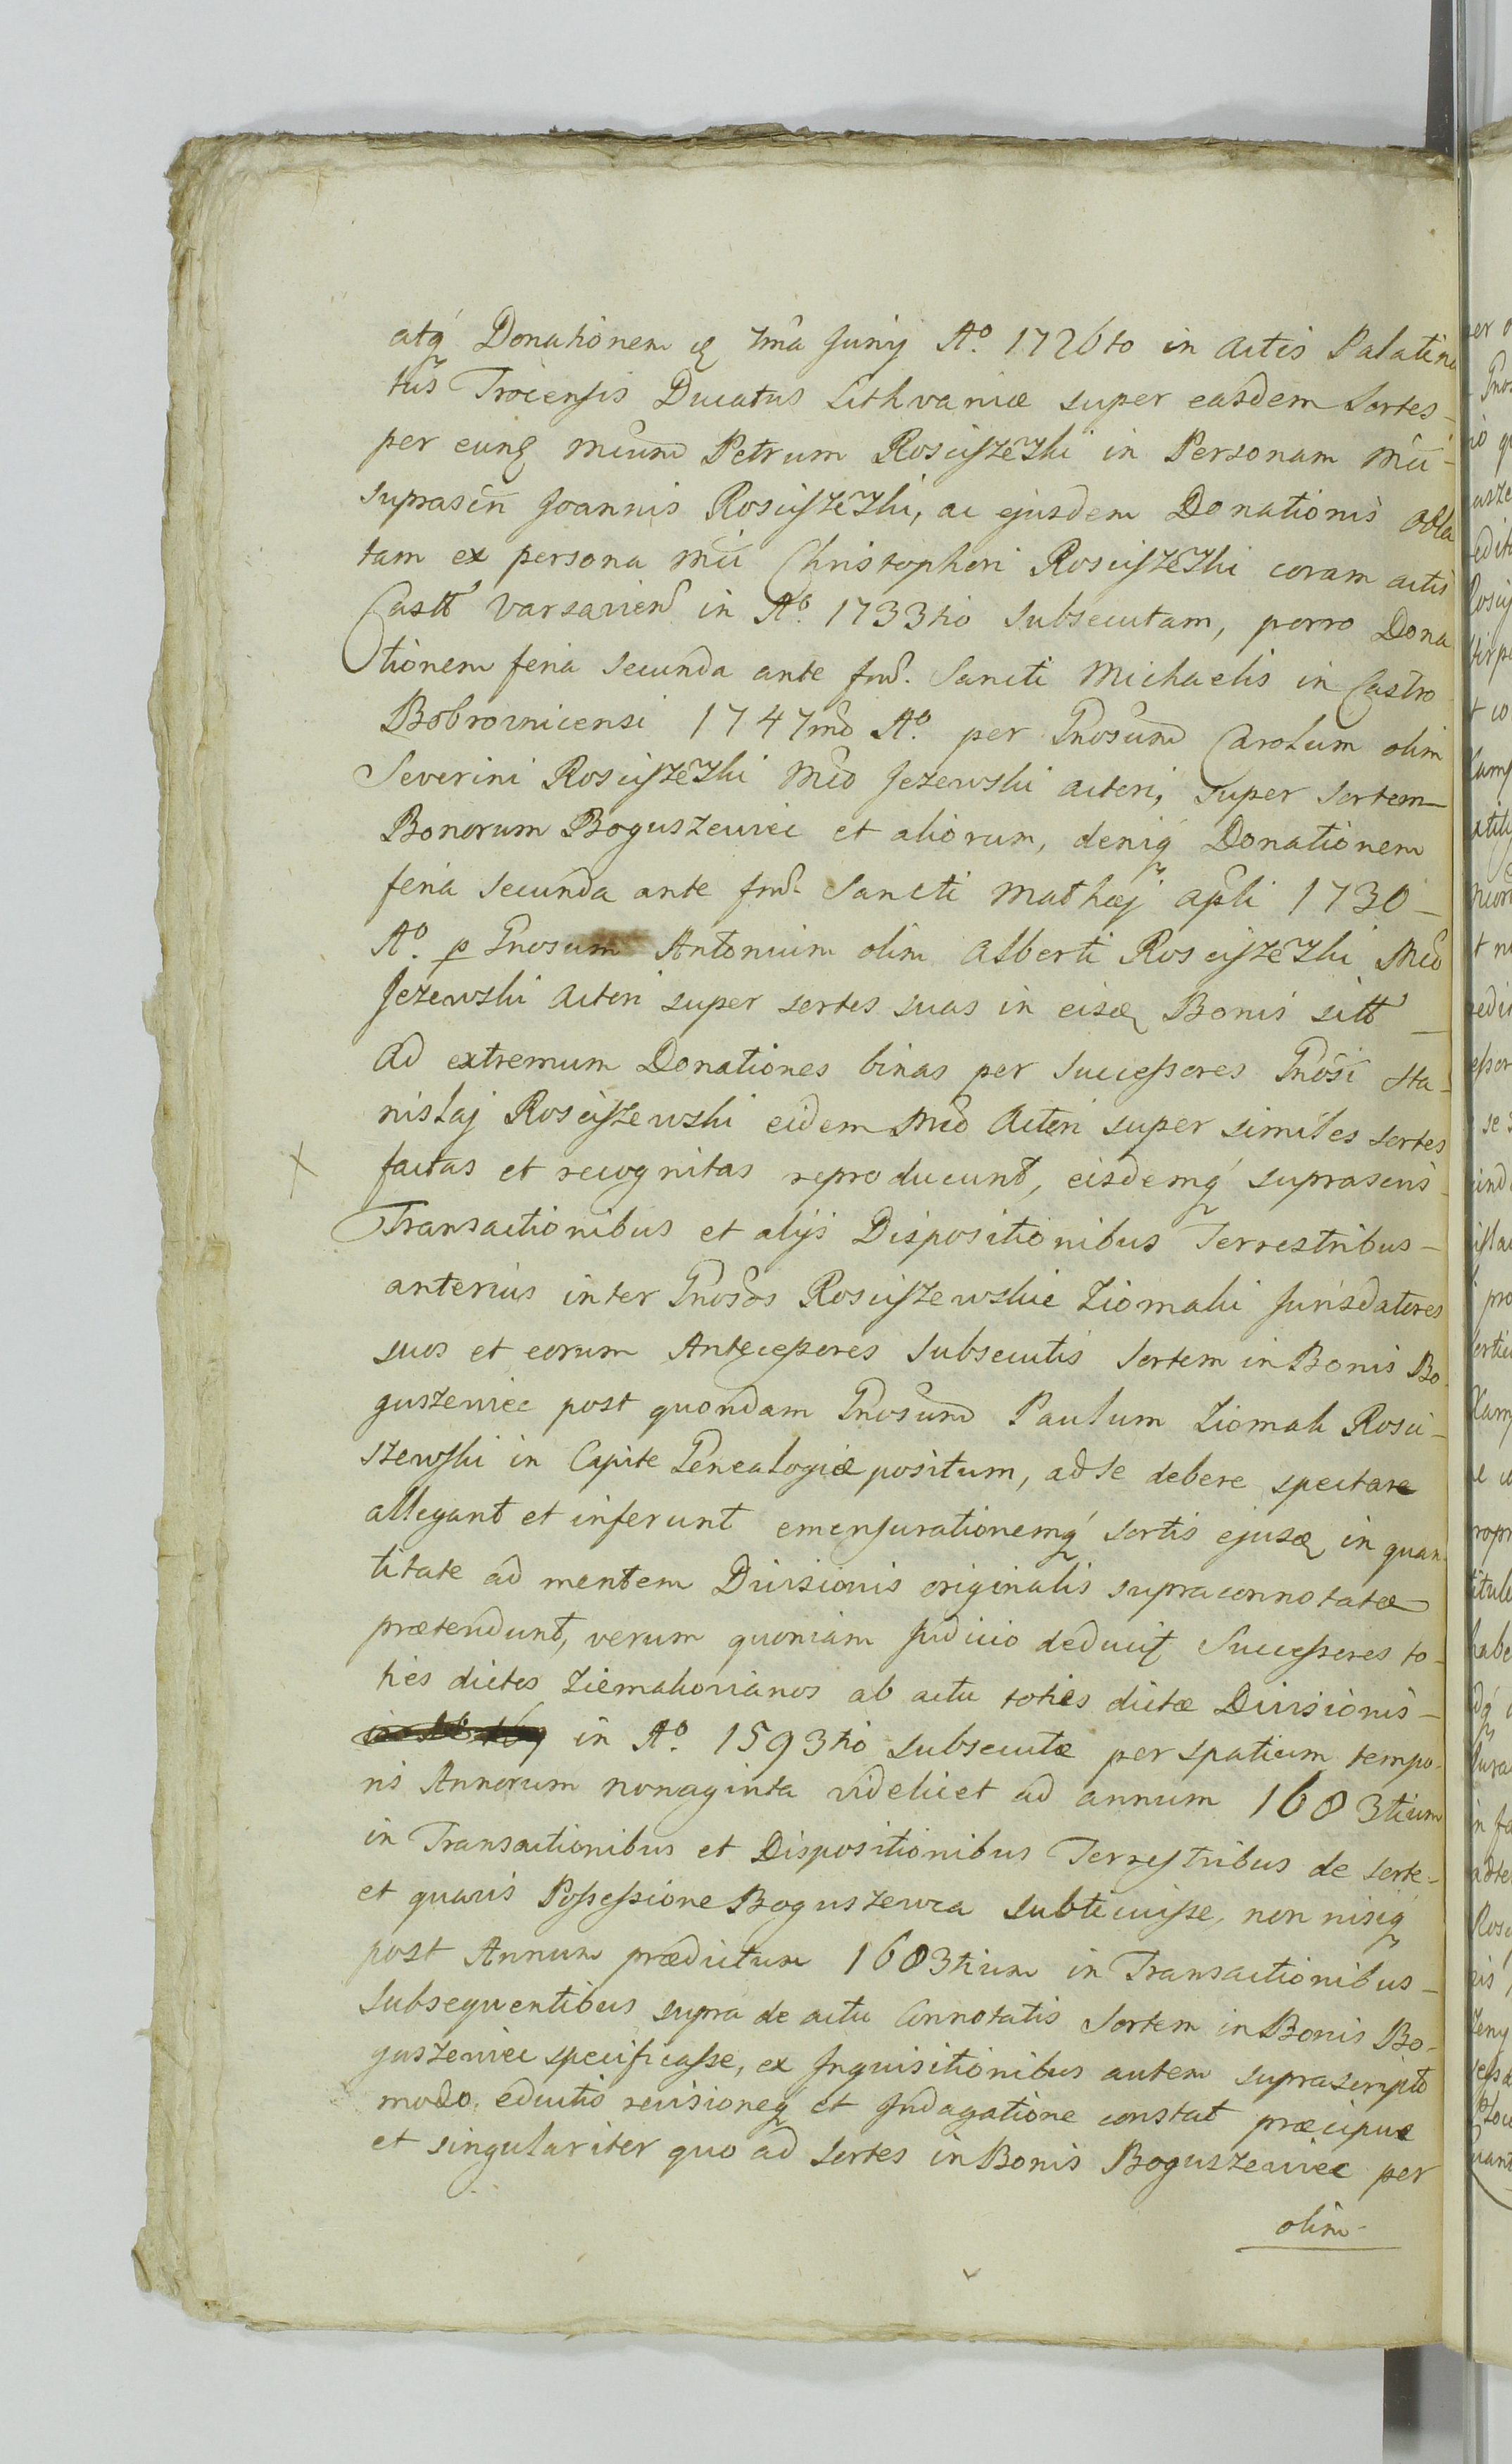 atq́ Donationem 7ma Junij Aº. 1726to in Actis Palatina
tus Trocensis Ducatus Lithvaniæ super easdem Sortes-
per eunq Mcum̃ Petrum Rosciszewski in Personam Mci-
suprascñ Joannis Rosciszewski, ac ejusdem Donationis obla
tam ex persona Mci Christophori Rosciszewski coram actis
Castt̃ Varsavien̄ in Aº. 1733tio subsecutam, porro Dona
tionem feria secunda ante fm̃. Sancti Michaelis in Castro
Bobrovnicensi 1747mo Aº. per Gnosum̃ Carolum olim
Severini Rosciszewski Mco Jezewski actori, super sortem-
Bonorum Boguszewiec et aliorum, deniq́ Donationem
feria secunda ante fm̃. Sancti Mathæj Apli 1730-
Aº. p Gnosum Antonium olim Alberti Rosciszewski Mco
Jezewski Actori super sortes suas in eisdē Bonis sitt̃-
Ad extremum Donationes binas per Successores Gnosi Sta-
nislaj Rosciszewski eidem Mco Actori super similes sortes
X factas et recognitas reproducunt, eisdemq́ suprascris-
Transactionibus et alijs Dispositionibus Terrestribus-
anterius inter Gnosos Rosciszewskie Ziomaki Jurisdatores
suos et eorum Antecessores subsecutis Sortem in Bonis Bo
guszewiec post quondam Gnosum̃ Paulum Ziomak Rosci-
szewski in Capite Genealogiæ positum, ad se debere spectare
allegant et inferunt emensurationemq́ sortis ejusdē in quan
titate ad mentem Divisionis originalis supraconnotatæ
prætendunt, verum quoniam Judicio deducit Successores to-
ties dictos Ziemakovianos ab actu toties dictæ Divisionis-
in Aº. 1593tio subsecutæ per spatium tempo-
ris Annorum nonaginta videlicet ad annum 1683tium
in Transactionibus et Dispositionibus Terrestribus de sorte-
et quavis Possessione Boguszewca subticuisse, non nisiq́
post Annum prædictum 1683tium in Transactionibus-
Subsequentibus supra de actu Connotatis Sortem in Bonis Bo-
guszewiec specificasse, ex Inquisitionibus autem suprascripto
modo, eductio revisioneq́ et Indagatione constat præcipue
et singulariter quo ad sortes in Bonis Boguszewiec per
olim-